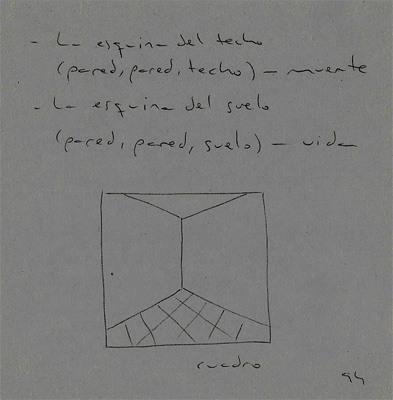 - La esquina del techo
(pared, pared, techo) - muerte
- La esquina del suelo
(pared, pared, suelo) - vida
cuadro
94